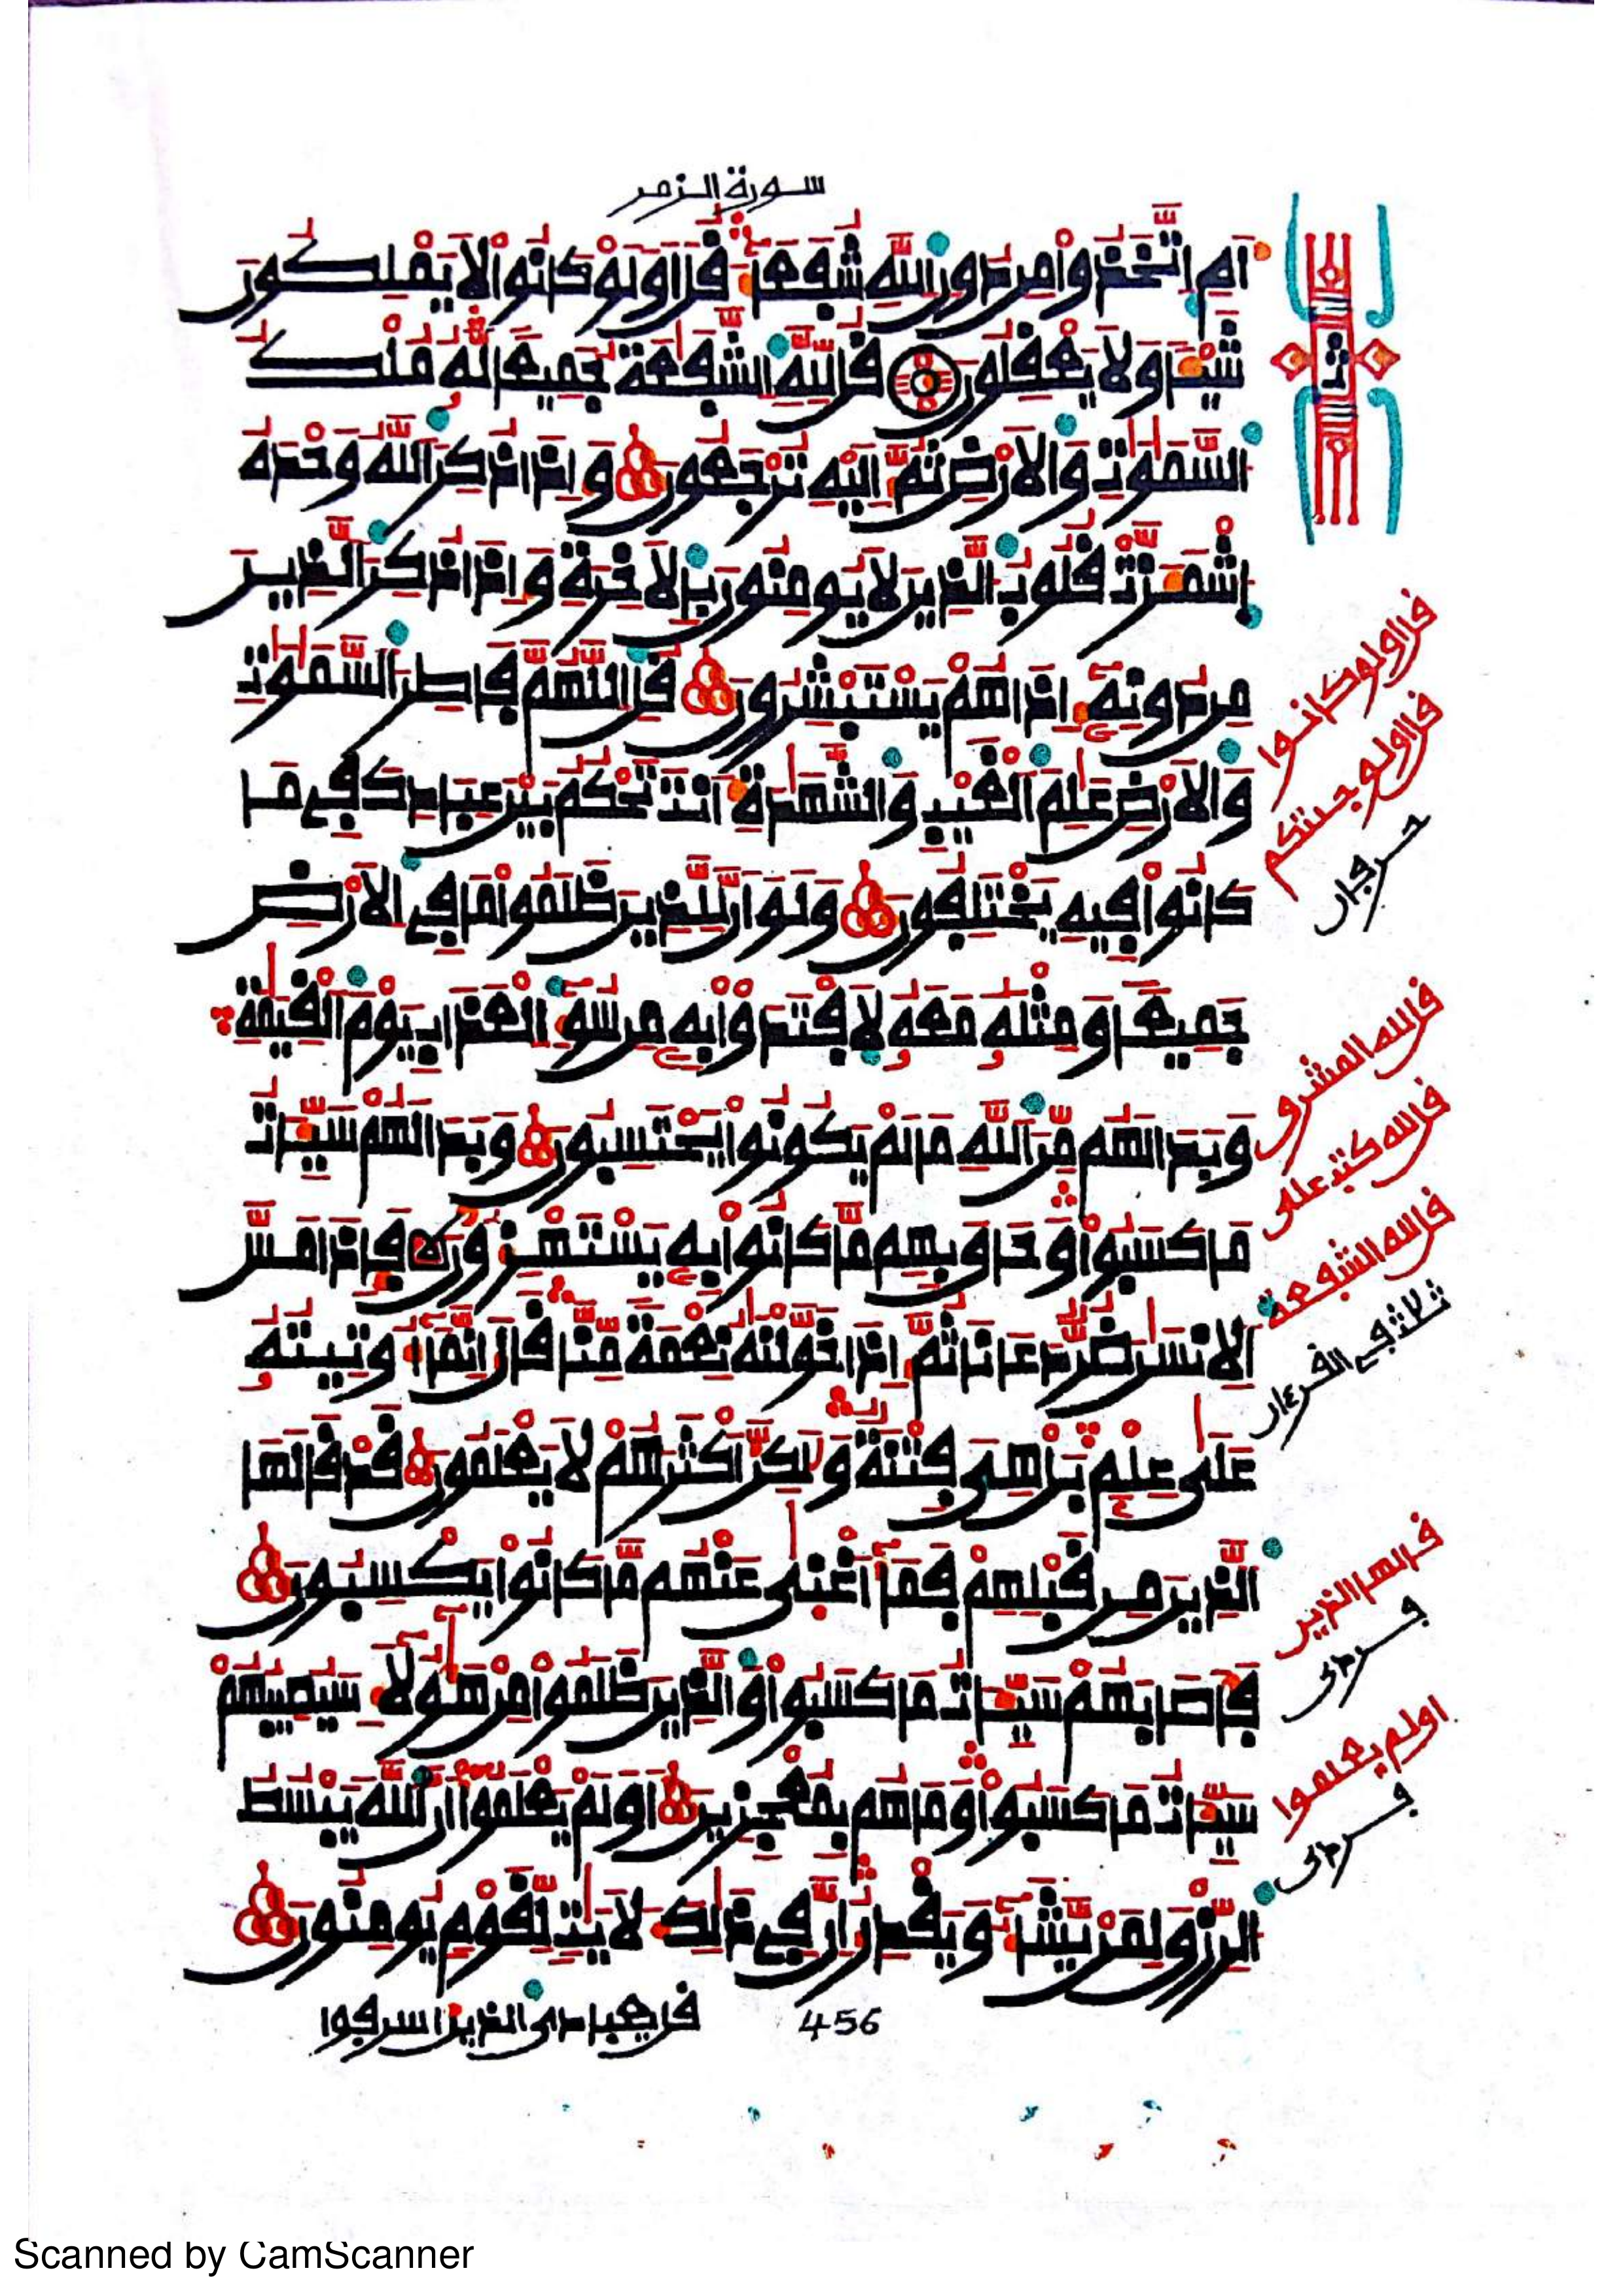 سورة الزمر
اَمِ اِتَّخَذُواْ مِن دُونِ اِللَّهِ شُفَعَآءَ قُلَ اَوَلَوْ كَانُواْ لَا يَمْلِكُونَ
شَيْـٔاً وَلَا يَعْقِلُونَ قُل لِّلهِ اِلشَّفَٰعَةُ جَمِيعاً لَّهُۥ مُلْكُ
اُلسَّمَٰوَٰتِ وَالَارْضِ ثُمَّ إِلَيْهِ تُرْجَعُونَ وَإِذَا ذُكِرَ اَللَّهُ وَحْدَهُ
اُشْمَأَزَّتْ قُلُوبُ اُلذِينَ لَا يُومِنُونَ بِالَاخِرَةِ وَإِذَا ذُكِرَ اَلذِينَ
مِن دُونِهِۦٓ إِذَا هُمْ يَسْتَبْشِرُونَ قُلِ اِللَّهُمَّ فَاطِرَ اَلسَّمَٰوَٰتِ
وَالَارْضِ عَٰلِمَ اَلْغَيْبِ وَالشَّهَٰدَةِ أَنتَ تَحْكُمُ بَيْنَ عِبَادِكَ فِے مَا
كَانُواْ فِيهِ يَخْتَلِفُونَ وَلَوَ اَنَّ لِلذِينَ ظَلَمُواْ مَا فِے اِلَارْضِ
جَمِيعاً وَمِثْلَهُۥ مَعَهُۥ لَافْتَدَوْاْ بِهِۦ مِن سُوٓءِ اِلْعَذَابِ يَوْمَ اَلْقِيَٰمَةِ
وَبَدَا لَهُم مِّنَ اَللَّهِ مَا لَمْ يَكُونُواْ يَحْتَسِبُونَ وَبَدَا لَهُمْ سَيِّـَٔاتُ
مَا كَسَبُواْ وَحَاقَ بِهِم مَّا كَانُواْ بِهِۦ يَسْتَهْزِءُونَ فَإِذَا مَسَّ
اَلِانسَٰنَ ضُرٌّ دَعَانَا ثُمَّ إِذَا خَوَّلْنَٰهُ نِعْمَةً مِّنَّا قَالَ إِنَّمَآ أُوتِيتُهُۥ
عَلَىٰ عِلْمٍ بَلْ هِىَ فِتْنَةٌ وَلَٰكِنَّ أَكْثَرَهُمْ لَا يَعْلَمُونَ قَدْ قَالَهَا
اَلذِينَ مِن قَبْلِهِمْ فَمَآ أَغْنَىٰ عَنْهُم مَّا كَانُواْ يَكْسِبُونَ
فَأَصَابَهُمْ سَيِّـَٔاتُ مَا كَسَبُواْ وَالذِينَ ظَلَمُواْ مِنْ هَٰٓؤُلَآءِ سَيُصِيبُهُمْ
سَيِّـَٔاتُ مَا كَسَبُواْ وَمَا هُم بِمُعْجِزِينَ أَوَلَمْ يَعْلَمُوٓاْ أَنَّ اَللَّهَ يَبْسُطُ
اُلرِّزْقَ لِمَنْ يَّشَآءُ وَيَقْدِرُ إِنَّ فِے ذَٰلِكَ لَأٓيَٰتٍ لِّقَوْمٍ يُومِنُونَ
456
قل يعبادى الذين اسرفوا
ثمن
قل اولو كانوا
قل اولو جئتكم
حرفان
قل لله المشرق
قل لله كتب على
قل لله الشفعة
ثلاث فى القرءان
قد قالها الذين
فردى
اولم يعلموا
فردى
Scanned by CamScanner